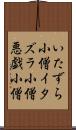 いたずら
小僧イタ
ズラ小僧
悪戯小僧